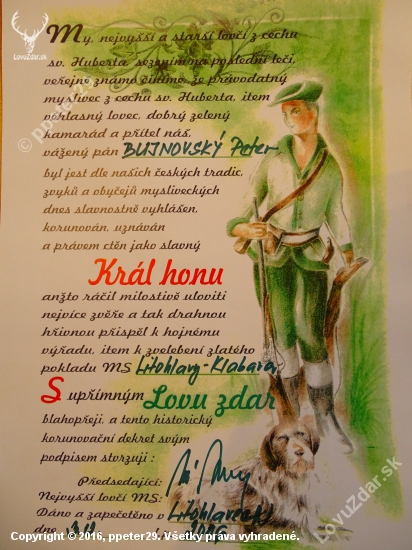 LovuZdar.sk
My, nejvyšší a starší lovčí z cechu
sv. Huberta, sezením na poslední leči,
veřejně známo činíme, že pravodatný
myslivec z cechu sv. Huberta, item
věhlasný lovec, dobrý zelený
kamarád a přítel náš,
vážený pán BUJNOVSKÝ Peter
byl jest dle našich českých tradic,
zvyků a obyčejů mysliveckých
dnes slavnostně vyhlášen,
korunován, uznáván
a právem ctěn jako slavný
Král honu
anžto ráčil milostivě uloviti
nejvíce zvěře a tak drahnou
hřivnou přispěl k hojnému
výřadu, item k zvelebení zlatého
pokladu MS Litohlavy-Klabava
S upřímným Lovu zdar
blahopřeji, a tento historický
korunovační dekret svým
podpisem stvrzuji :
Předsedající:
Nejvyšší lovčí MS:
Dáno a zapečetěno v
dne
© ppeter29
LovuZdar.sk
Copyright © 2016, ppeter29. Všetky práva vyhradené.